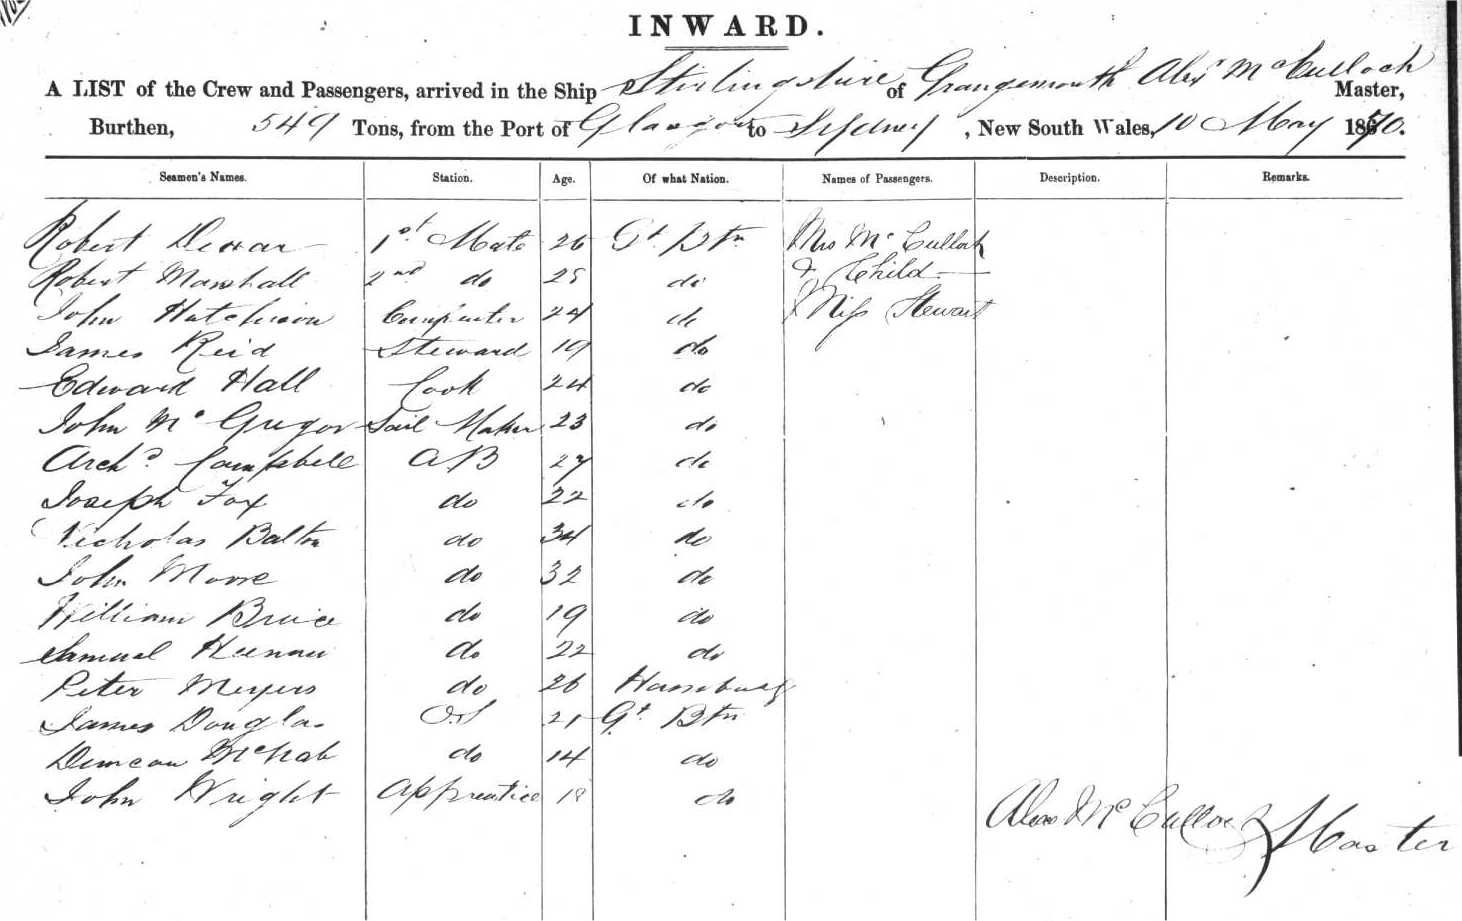 INWARD.
A LIST of the Crew and Passengers, arrived in the Ship Stirlingshire of Grangemouth Alexr McCulloch Master,
Burthen, 549 Tons, from the Port of Glasgow to Sydney, New South Wales, 10 May 1870.
Seamen's Names. Station. Age. Of what Nation. Names of Passengers. Description. Remarks.
Robert Dewar 1st Mate 26 Gt Btn Mrs McCulloch
Robert Marshall 2nd do 25 do & Child
John Hutchison Carpenter 24 do Miss Stewart
James Reid Steward 19 do
Edward Hall Cook 24 do
John McGregor Sail Maker 23 do
Archd Campbell AB 27 do
Joseph Fox do 22 do
Nicholas Balton do 34 do
John Moore do 32 do
William Bruce do 19 do
Samuel Keenan do 22 do
Peter Meyers do 26 Hamburg
James Douglas OS 21 Gt Btn
Duncan McNab do 14 do
John Wright Apprentice 18 do
Alexr McCulloch Master